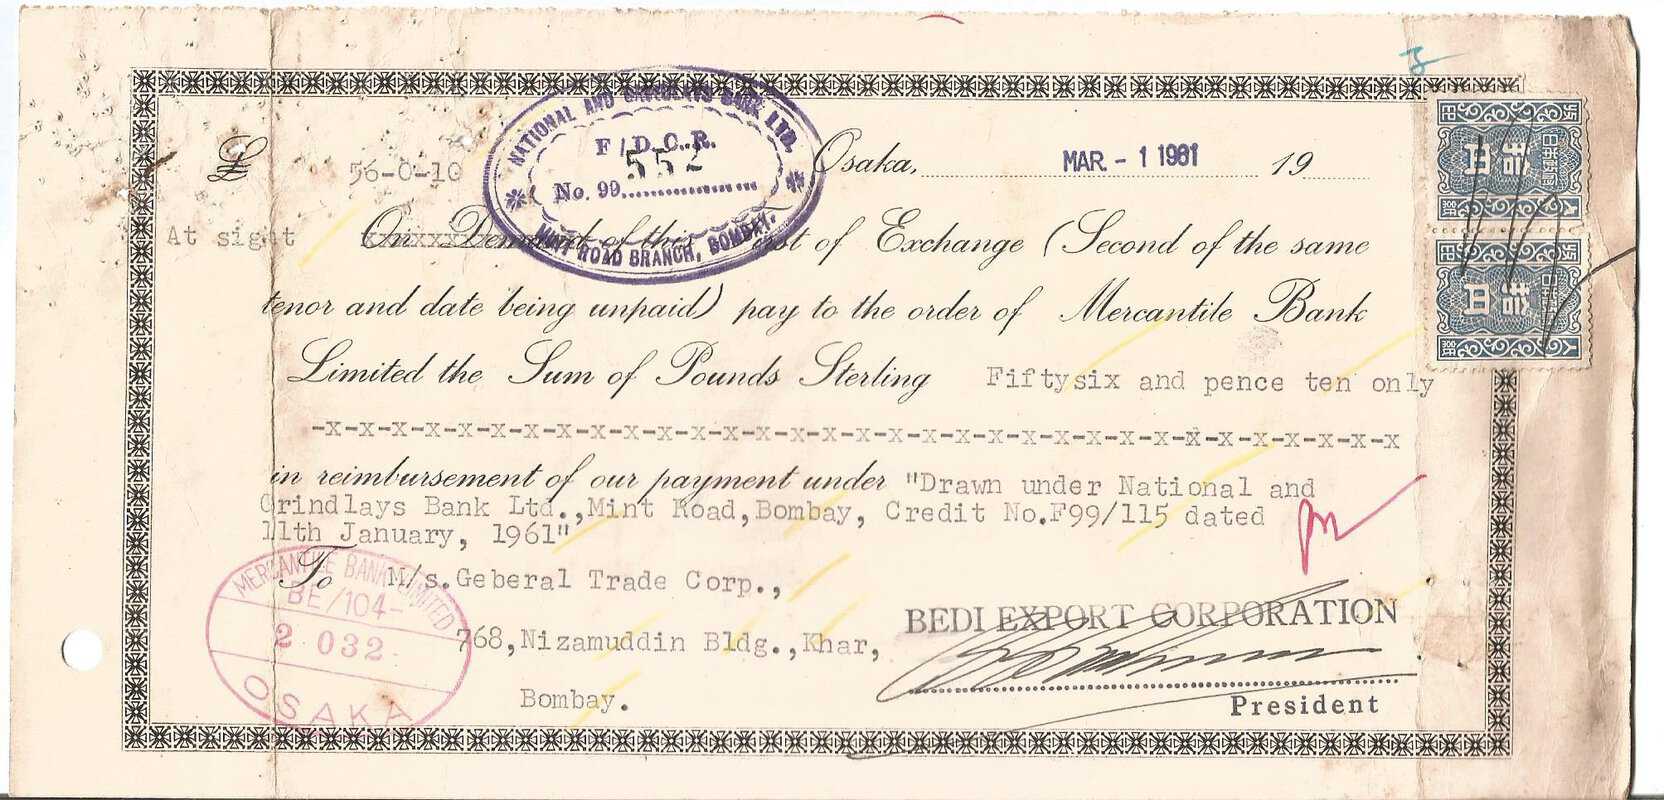 £ 56-0-10
NATIONAL AND GRINDLAYS BANK LTD.
F/D.C.R.
No. 99 552
MINT ROAD BRANCH, BOMBAY.
Osaka, MAR. - 1 1961 19
At sight On Demand of this First of Exchange (Second of the same
tenor and date being unpaid) pay to the order of Mercantile Bank
Limited the Sum of Pounds Sterling Fiftysix and pence ten only
-x-x-x-x-x-x-x-x-x-x-x-x-x-x-x-x-x-x-x-x-x-x-x-x-x-x-x-x-x-x-x-x-x
in reimbursement of our payment under "Drawn under National and
Grindlays Bank Ltd.,Mint Road,Bombay, Credit No.F99/115 dated
11th January, 1961"
To M/s.Geberal Trade Corp.,
768,Nizamuddin Bldg.,Khar,
Bombay.
MERCANTILE BANK LIMITED
BE/104-
2 032
OSAKA
BEDI EXPORT CORPORATION
President